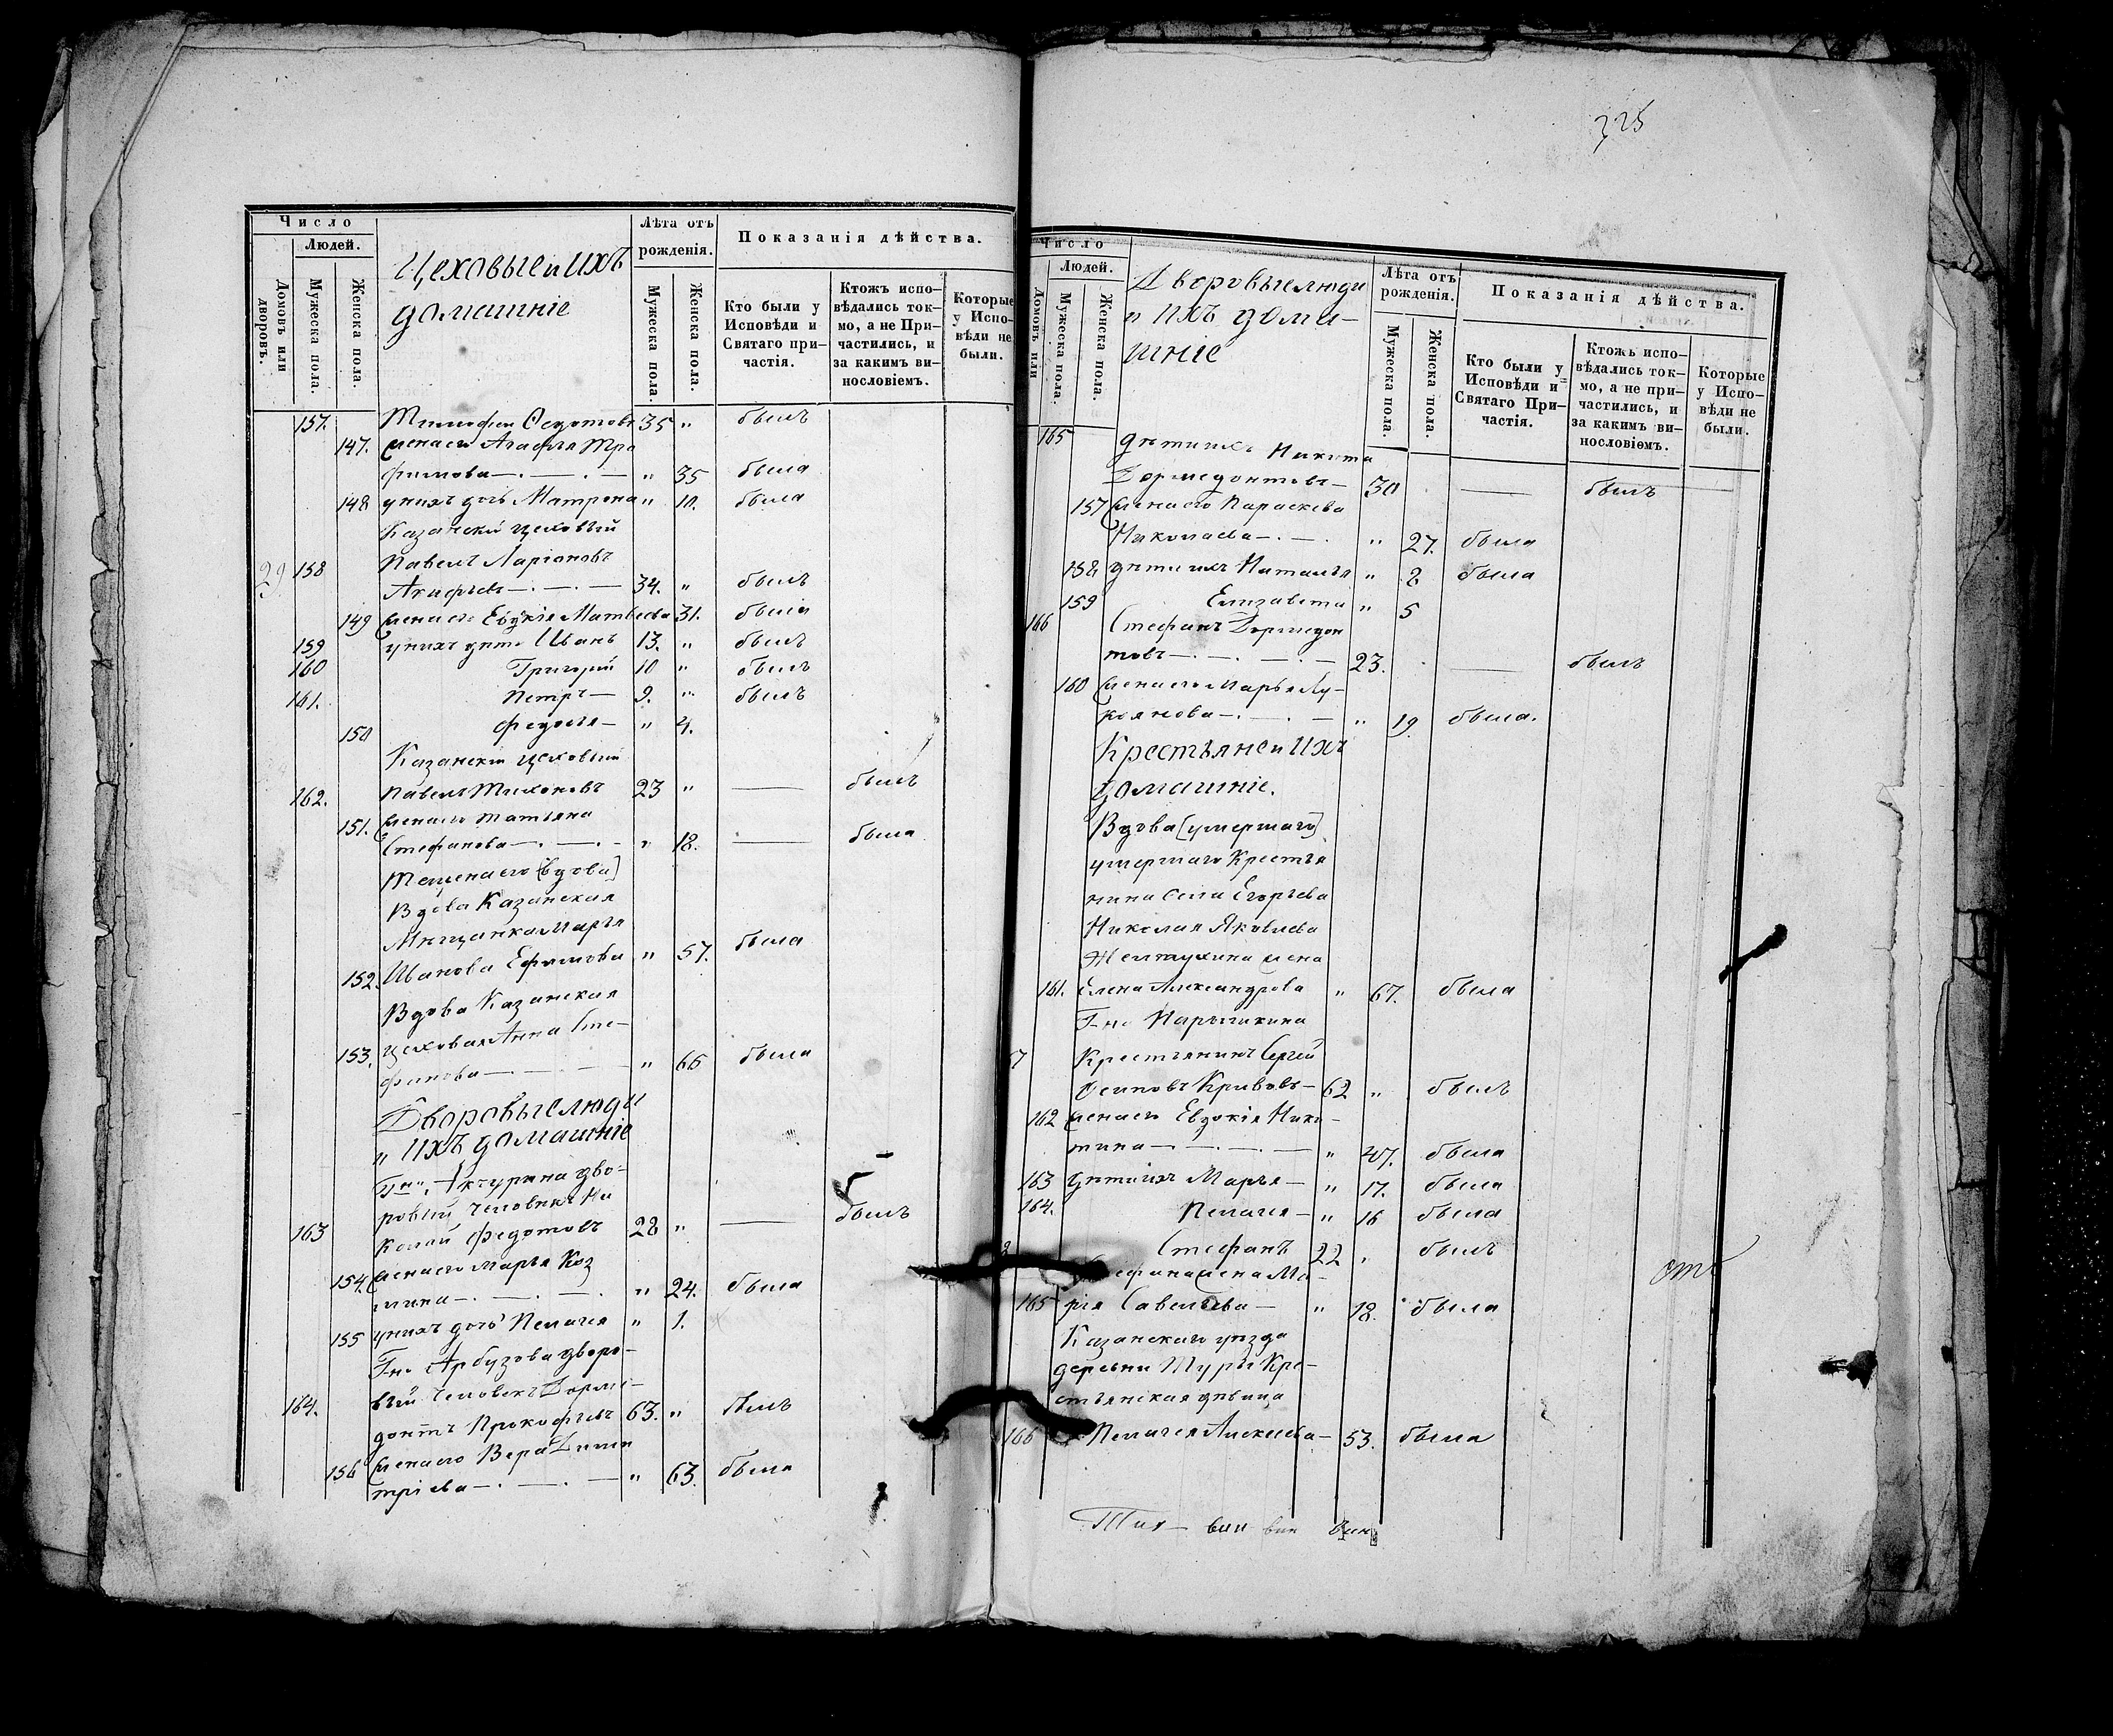 Число
Людей.
Домовъ или дворовъ.
Мужеска пола.
Женска пола.
Цеховые и ихъ
домашніе
Лѣта отъ
рожденія.
Мужеска пола.
Женска пола.
Показанія дѣйства.
Кто были у
Исповѣди и
Святаго при-
частія.
Ктожъ испо-
вѣдались ток-
мо, а не При-
частились, и
за какимъ ви-
нословіемъ.
Которые
у Испо-
вѣди не
были.
157. Тимофей Федотовъ 35 " былъ
147. жена его Агафья Тро
фимова —.—.— " 35 была
148 у нихъ дочь Матрона " 10. была
Казанскій цеховый
29. 158 Павелъ Ларіоновъ
34. " былъ
149 жена его Евдокія Матвеева 31. была
159 у нихъ дети Иванъ 13. " былъ
160 Григорій 10 " былъ
161. Петръ — 9. " былъ
150 Федосья — " 4.
Казанскій цеховый
162. Павелъ Тихоновъ 23 " — былъ
151. жена его Татьяна
Стефанова —.—.— " 18. — была
[вдова]
Вдова Казанская
Мѣщанка Марья
152. Иванова Ефимова " 57. была
Вдова Казанская
153. цеховая Анна Сте-
фанова —.— — " 66 была
Дворовые люди
и ихъ домашніе
Гна. Акчурина дво-
ровый человекъ Ни
163 колай Федотовъ 28 " — былъ
154. жена его Марья Коз
мина —.—.— " 24. была
155 у нихъ дочь Пелагея " 1.
Гна Арбузова дворо-
вый человекъ Дорме-
164. донтъ Прокофьевъ 63. " былъ
156 жена его Вера Дими
тріева —.—.— " 63. была
325
Число
Людей.
Домовъ или
Мужеска пола.
Женска пола.
Дворовые люди
и ихъ дома-
шніе
Лѣта отъ
рожденія.
Мужеска пола.
Женска пола.
Показанія дѣйства.
Кто были у
Исповѣди и
Святаго При-
частія.
Ктожъ испо-
вѣдались ток-
мо, а не при-
частились, и
за какимъ ви-
нословіемъ.
Которые
у Испо-
вѣди не
были.
165 дети ихъ Никита
Дормедонтовъ — 30 — былъ
157 жена его Параскева
Николаева —.—. " 27. была
158 дети ихъ Наталья " 8 была
159 Елизавета " 5
166 Стефанъ Дормедон
товъ —.—.—.— 23. — былъ
160 жена его Марья Лу-
коянова —.—.— " 19. была.
Крестьяне и ихъ
домашніе.
Вдова [умершаго]
умершаго Крестья
нина села Егорьева
Николая Яковлева
Желтухина жена
161. Елена Александрова " 67. была
Гна Нарышкина
7 Крестьянинъ Сергей
Осиповъ Кривовъ — 62 " былъ
162 жена его Евдокія Ники-
тина —.—.—.— " 47. была
163 дети ихъ Марья — " 17. была
164. Пелагея — " 16 была
Стефанъ 22 " былъ
жена Ма-
165 рія Савельева — " 18. была
Казанскаго уезда
деревни Туры Кре-
стьянская девица
166 Пелагея Алексеева — 53. была